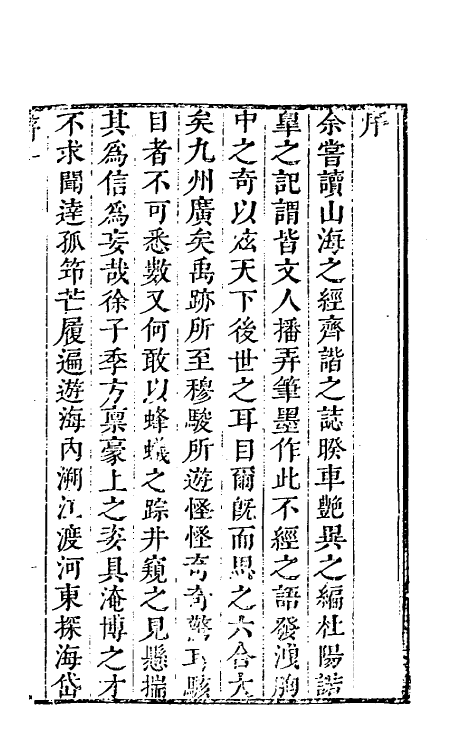 序
余嘗讀山海之經齊諧之誌睽車艷異之編杜陽諧
皐之記謂皆文人播弄筆墨作此不經之語發洩胸
中之奇以炫天下後世之耳目爾旣而思之六合大
矣九州廣矣禹跡所至穆駿所遊怪怪奇奇驚耳駭
目者不可悉數又何敢以蜂蟻之踪井窺之見懸揣
其爲信爲妄哉徐子季方稟豪上之姿具淹博之才
不求聞逹孤笻芒履遍遊海内溯江渡河東探海岱
序 一